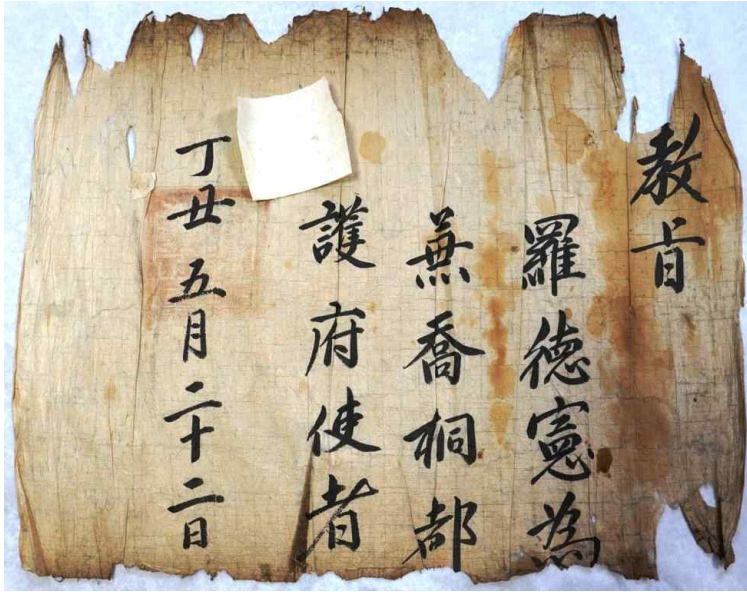 教旨
羅德憲為
兼喬桐都
護府使者
丁丑五月二十二日